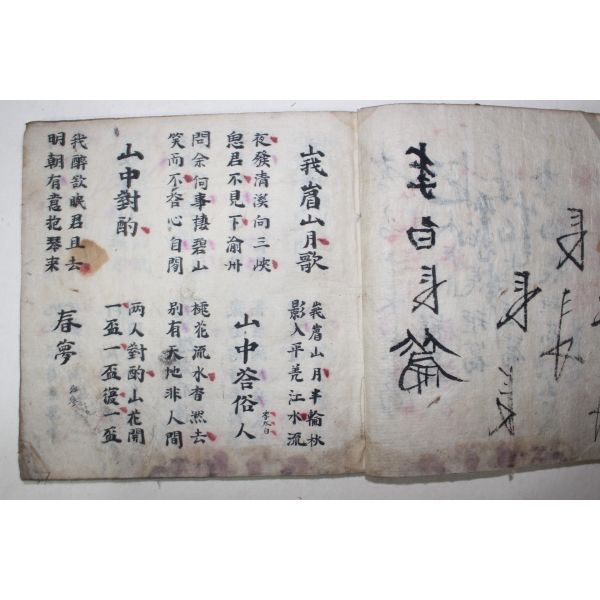 李白長篇
長
長
峩眉山月歌
峩眉山月半輪秋
影入平羌江水流
夜發清溪向三峽
思君不見下渝州
山中荅俗人
李太白
問余何事棲碧山
笑而不荅心自閑
桃花流水杳然去
別有天地非人間
山中對酌
两人對酌山花開
一盃一盃復一盃
我醉欲眠君且去
明朝有意抱琴来
春夢